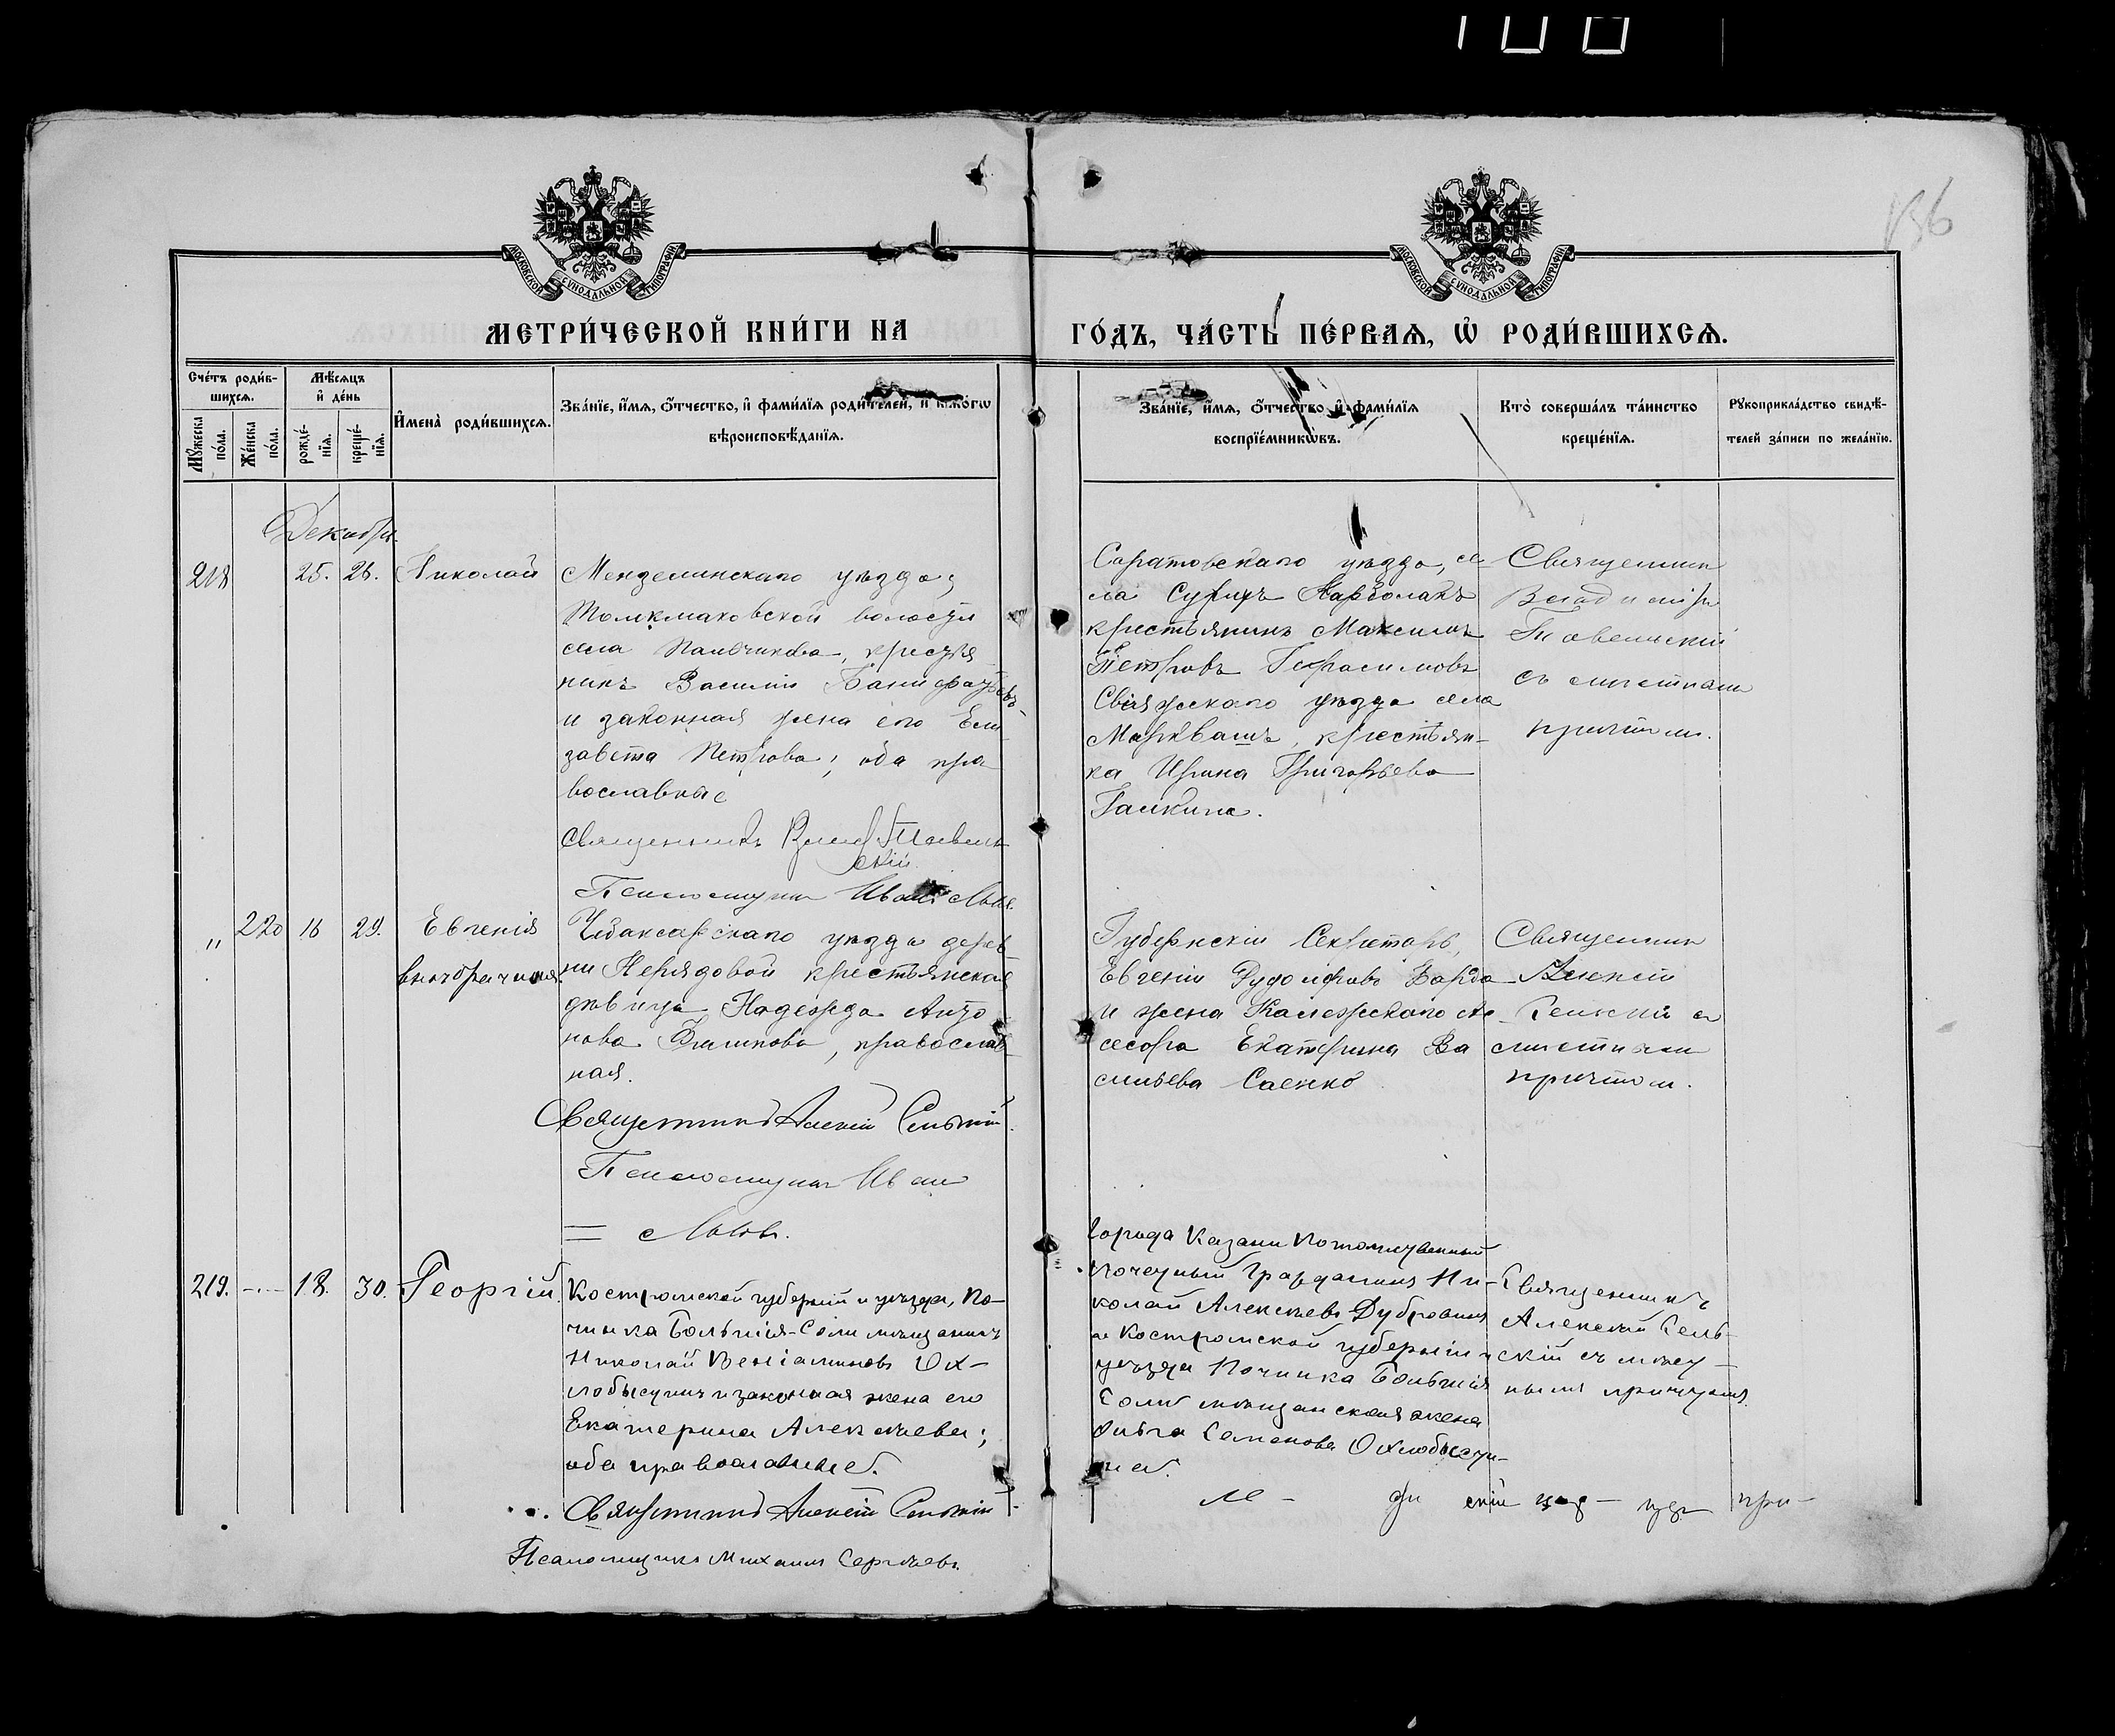 136
МОСКОВСКОЙ СѴНОДАЛЬНОЙ ТИПОГРАФІИ
МОСКОВСКОЙ СѴНОДАЛЬНОЙ ТИПОГРАФІИ
МЕТРИ́ЧЕСКОЙ КНИ́ГИ НА
ГО́ДЪ, ЧА́СТЬ ПЕ́РВАѦ, Ѡ҆ РОДИ́ВШИХСѦ.
Сче́тъ роди́в-
шихсѧ.
Мꙋжеска по́ла.
Же́нска по́ла.
Мѣ́сѧцъ
и҆ де́нь
рожде́-
нїѧ.
креще́-
нїѧ.
И҆мена̀ роди́вшихсѧ.
Зва́нїе, и҆́мѧ, ѻ҆́тчество, и҆ фами́лїѧ роди́телей, и҆ како́гѡ
вѣроисповѣ́данїѧ.
Зва́нїе, и҆́мѧ, ѻ҆́тчество и҆ фами́лїѧ
воспрїе́мникѡвъ.
Кто̀ соверша́лъ та́инство
креще́нїѧ.
Рꙋкоприкла́дство свидѣ́-
телей за́писи по жела́нїю.
Декабрь.
218 25. 26. Николай
Мензелинскаго уѣзда,
волости
села крестья
нинъ Василій
и законная жена его Ели
завета Петрова; оба пра
вославные
Священникъ
скій.
Псаломщикъ Иванъ
Саратовскаго уѣзда, се
ла
крестьянинъ Максимъ
Петровъ Герасимовъ
Свіяжскаго уѣзда села
Маркваш крестьян-
ка Ирина Григорьева
Галкина.
Священник
съ мѣстным
причтом.
" 220 16 29. Евгенія
внѣбрачная.
Чебоксарскаго уѣзда дерев
ни Нерядовой крестьянская
дѣвица Надежда Анто
нова Филипова, православ
ная.
Священникъ Алексій Сельскій.
Псаломщикъ Иван
= Львов.
Губернскій Секретарь,
Евгеній Рудольфовъ
и жена Колежскаго Ас
сесора Екатерина Ва
сильева Саенко
Священник
Алексій
Сельскій съ
мѣстным
причтом.
219. -..- 18. 30. Георгій.
Костромской губерніи и уѣзда, по-
чинка Большія-Соли мѣщанинъ
Николай Веніаминовъ Ох-
лобыстинъ и законная жена его
Екатерина Алексѣева;
оба православные.
Священникъ Алексій Сельскій
Псаломщикъ Михаилъ Сергѣевъ.
Города Казани Потомственный
почетный Гражданинъ Ни-
колай Алексѣевъ Дубровинъ
и Костромской губерніи и
уѣзда Починка Большія
Соли мѣщанская жена
Ольга Семенова Охлобысти-
на.
Священникъ
Алексій Сель-
скій съ мѣст-
нымъ причтомъ.
скій при-